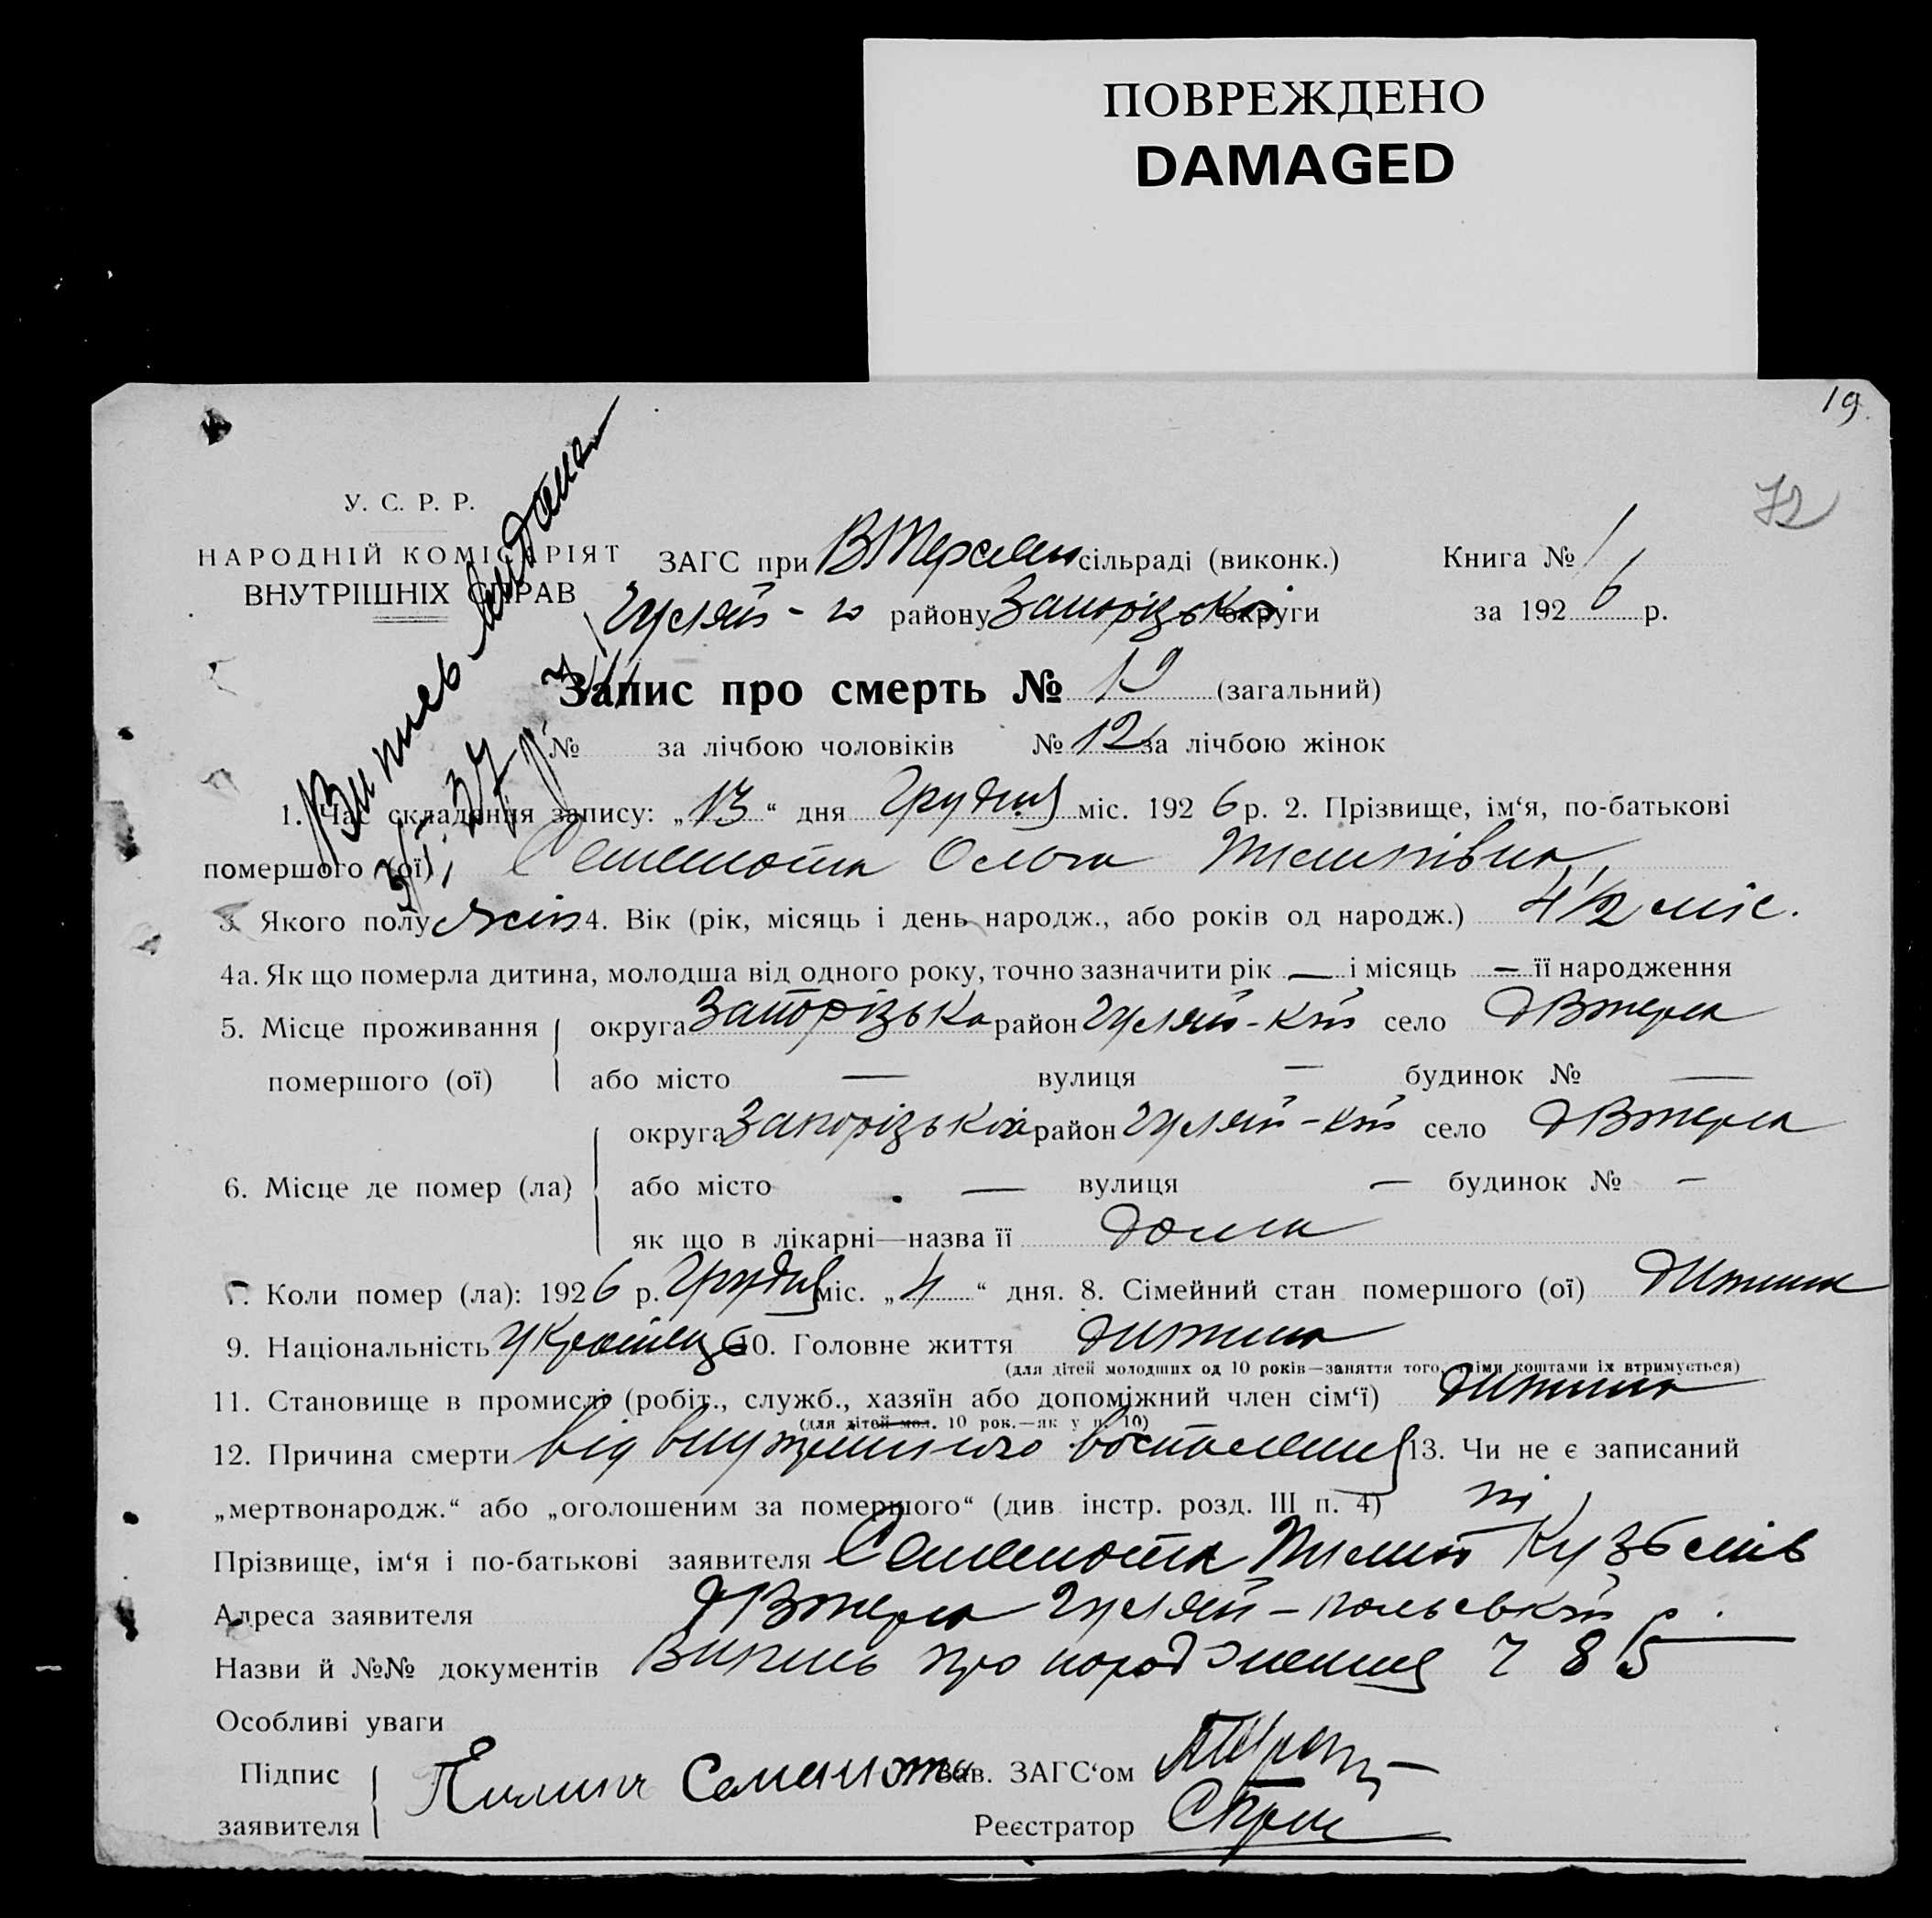 ПОВРЕЖДЕНО
DAMAGED
19.
72
У. С. Р. Р.
НАРОДНІЙ КОМІСАРІЯТ
ВНУТРІШНІХ СПРАВ
ЗАГС при ВТерсян сільраді (виконк.) Книга № 1
Гуляй - го району Запорізької округи за 1926 р.
Запис про смерть № 19 (загальний)
№ за лічбою чоловіків № 12 за лічбою жінок
1. Час складання запису: „13“ дня Грудня міс. 1926 р. 2. Прізвище, ім‘я, по-батькові
помершого (ої) Ольга
3. Якого полу жін 4. Вік (рік, місяць і день народж., або років од народж.) 4½ міс.
4а. Як що померла дитина, молодша від одного року, точно зазначити рік — і місяць — її народження
5. Місце проживання помершого (ої) округа Запорізька район Гуляй-кий село
або місто — вулиця — будинок № —
6. Місце де помер (ла) округа Запорізька район Гуляй-кий село
або місто — вулиця — будинок № —
як що в лікарні—назва її дома
7. Коли помер (ла): 1926 р. Грудня міс. „4“ дня. 8. Сімейний стан помершого (ої) дитина
9. Національність 10. Головне життя дитина
(для дітей молодших од 10 років—заняття того, чіїми коштами їх втримується)
11. Становище в промислі (робіт., служб., хазяїн або допоміжний член сім‘ї) дитина
(для дітей мол. 10 рок.—як у п. 10)
12. Причина смерти від 13. Чи не є записаний
„мертвонародж.“ або „оголошеним за помершого“ (див. інстр. розд. III п. 4) ні
Прізвище, ім‘я і по-батькові заявителя
Адреса заявителя Гуляй-польський р.
Назви й №№ документів Випись про народження ч 85
Особливі уваги
Підпис заявителя
Зав. ЗАГС‘ом
Реєстратор